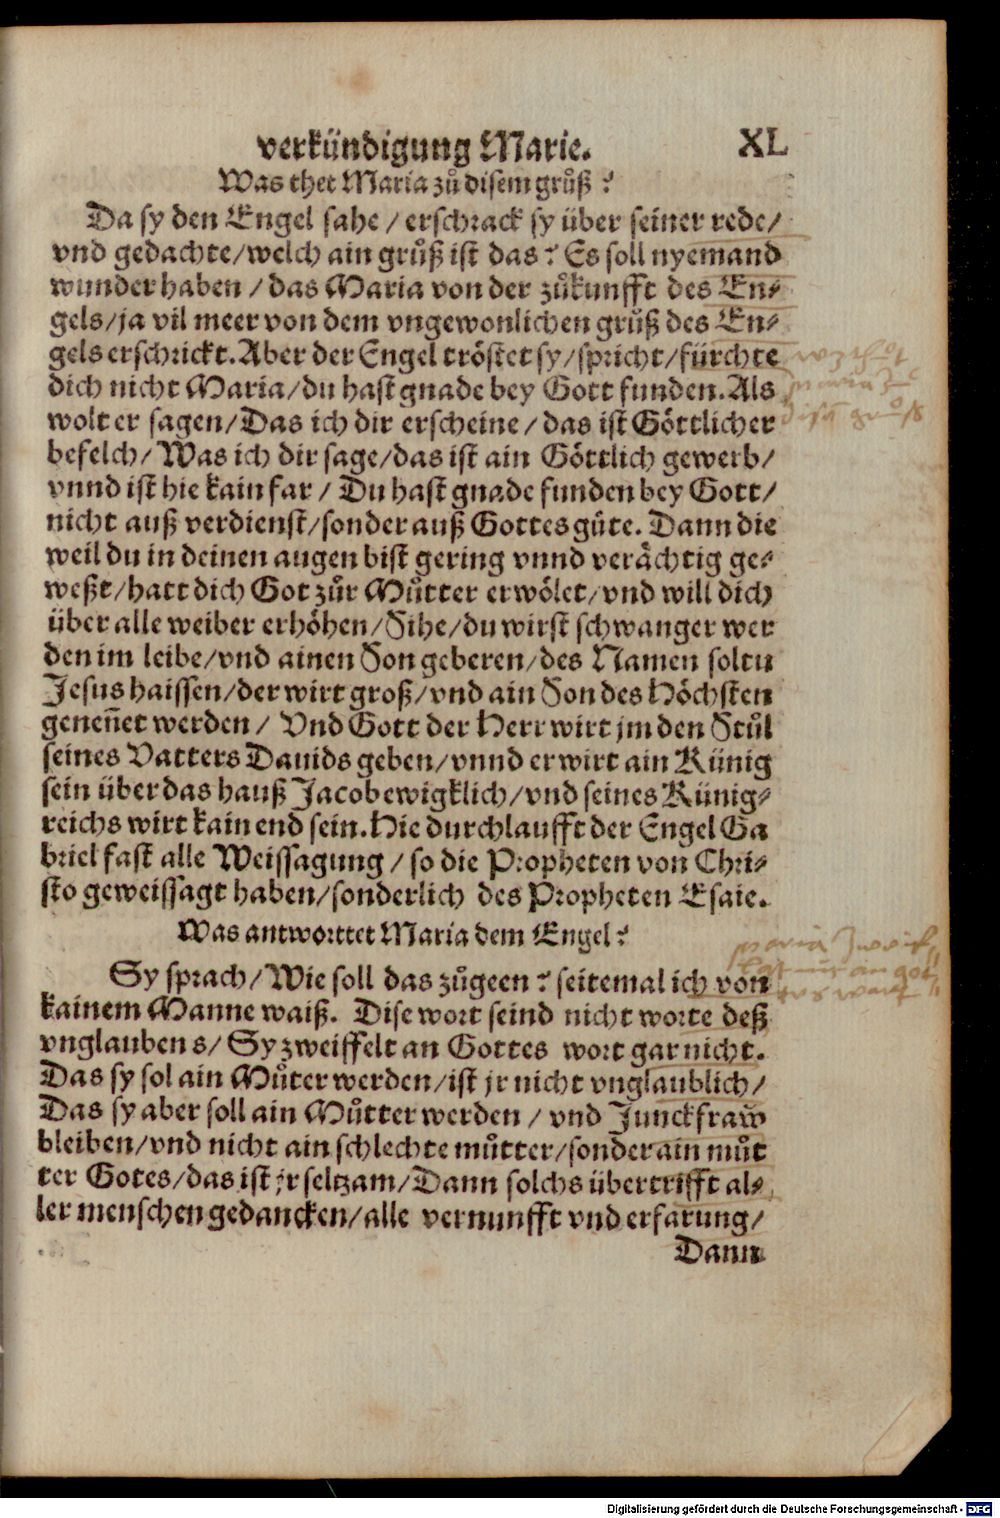 verkündigung Marie. XL
Was thet Maria zů disem grůß?
Da sy den Engel sahe / erschrack sy über seiner rede/
vnd gedachte/welch ain grůß ist das? Es soll nyemand
wunder haben / das Maria von der zůkunfft des En-
gels/ja vil meer von dem vngewonlichen grůß des En-
gels erschrickt. Aber der Engel tröstet sy/spricht/fürchte
dich nicht Maria/du hast gnade bey Gott funden. Als
wolt er sagen/Das ich dir erscheine / das ist Göttlicher
befelch/ Was ich dir sage/das ist ain Göttlich gewerb/
vnnd ist hie kain far / Du hast gnade funden bey Gott/
nicht auß verdienst/sonder auß Gottes güte. Dann die
weil du in deinen augen bist gering vnnd verächtig ge-
weßt/hatt dich Got zůr Můtter erwölet/vnd will dich
über alle weiber erhöhen/Sihe/du wirst schwanger wer
den im leibe/vnd ainen Son geberen/des Namen soltu
Jesus haissen/der wirt groß/vnd ain Son des Höchsten
geneñet werden/ Vnd Gott der Herr wirt jm den Stůl
seines Vatters Dauids geben/vnnd er wirt ain Künig
sein über das hauß Jacob ewigklich/vnd seines Künig-
reichs wirt kain end sein. Hie durchlaufft der Engel Ga
briel fast alle Weissagung / so die Propheten von Chri-
sto geweissagt haben/sonderlich des Propheten Esaie.
Was antworttet Maria dem Engel?
Sy sprach/Wie soll das zůgeen? seitemal ich von
kainem Manne waiß. Dise wort seind nicht worte deß
vnglaubens/ Sy zweiffelt an Gottes wort gar nicht.
Das sy sol ain Můter werden/ist jr nicht vnglaublich/
Das sy aber soll ain Můtter werden / vnd Junckfraw
bleiben/vnd nicht ain schlechte můtter/sonder ain můt
ter Gotes/das ist jr seltzam/Dann solchs übertrifft al-
ler menschen gedancken/alle vernunfft vnd erfarung/
Dann
Digitalisierung gefördert durch die Deutsche Forschungsgemeinschaft - DFG